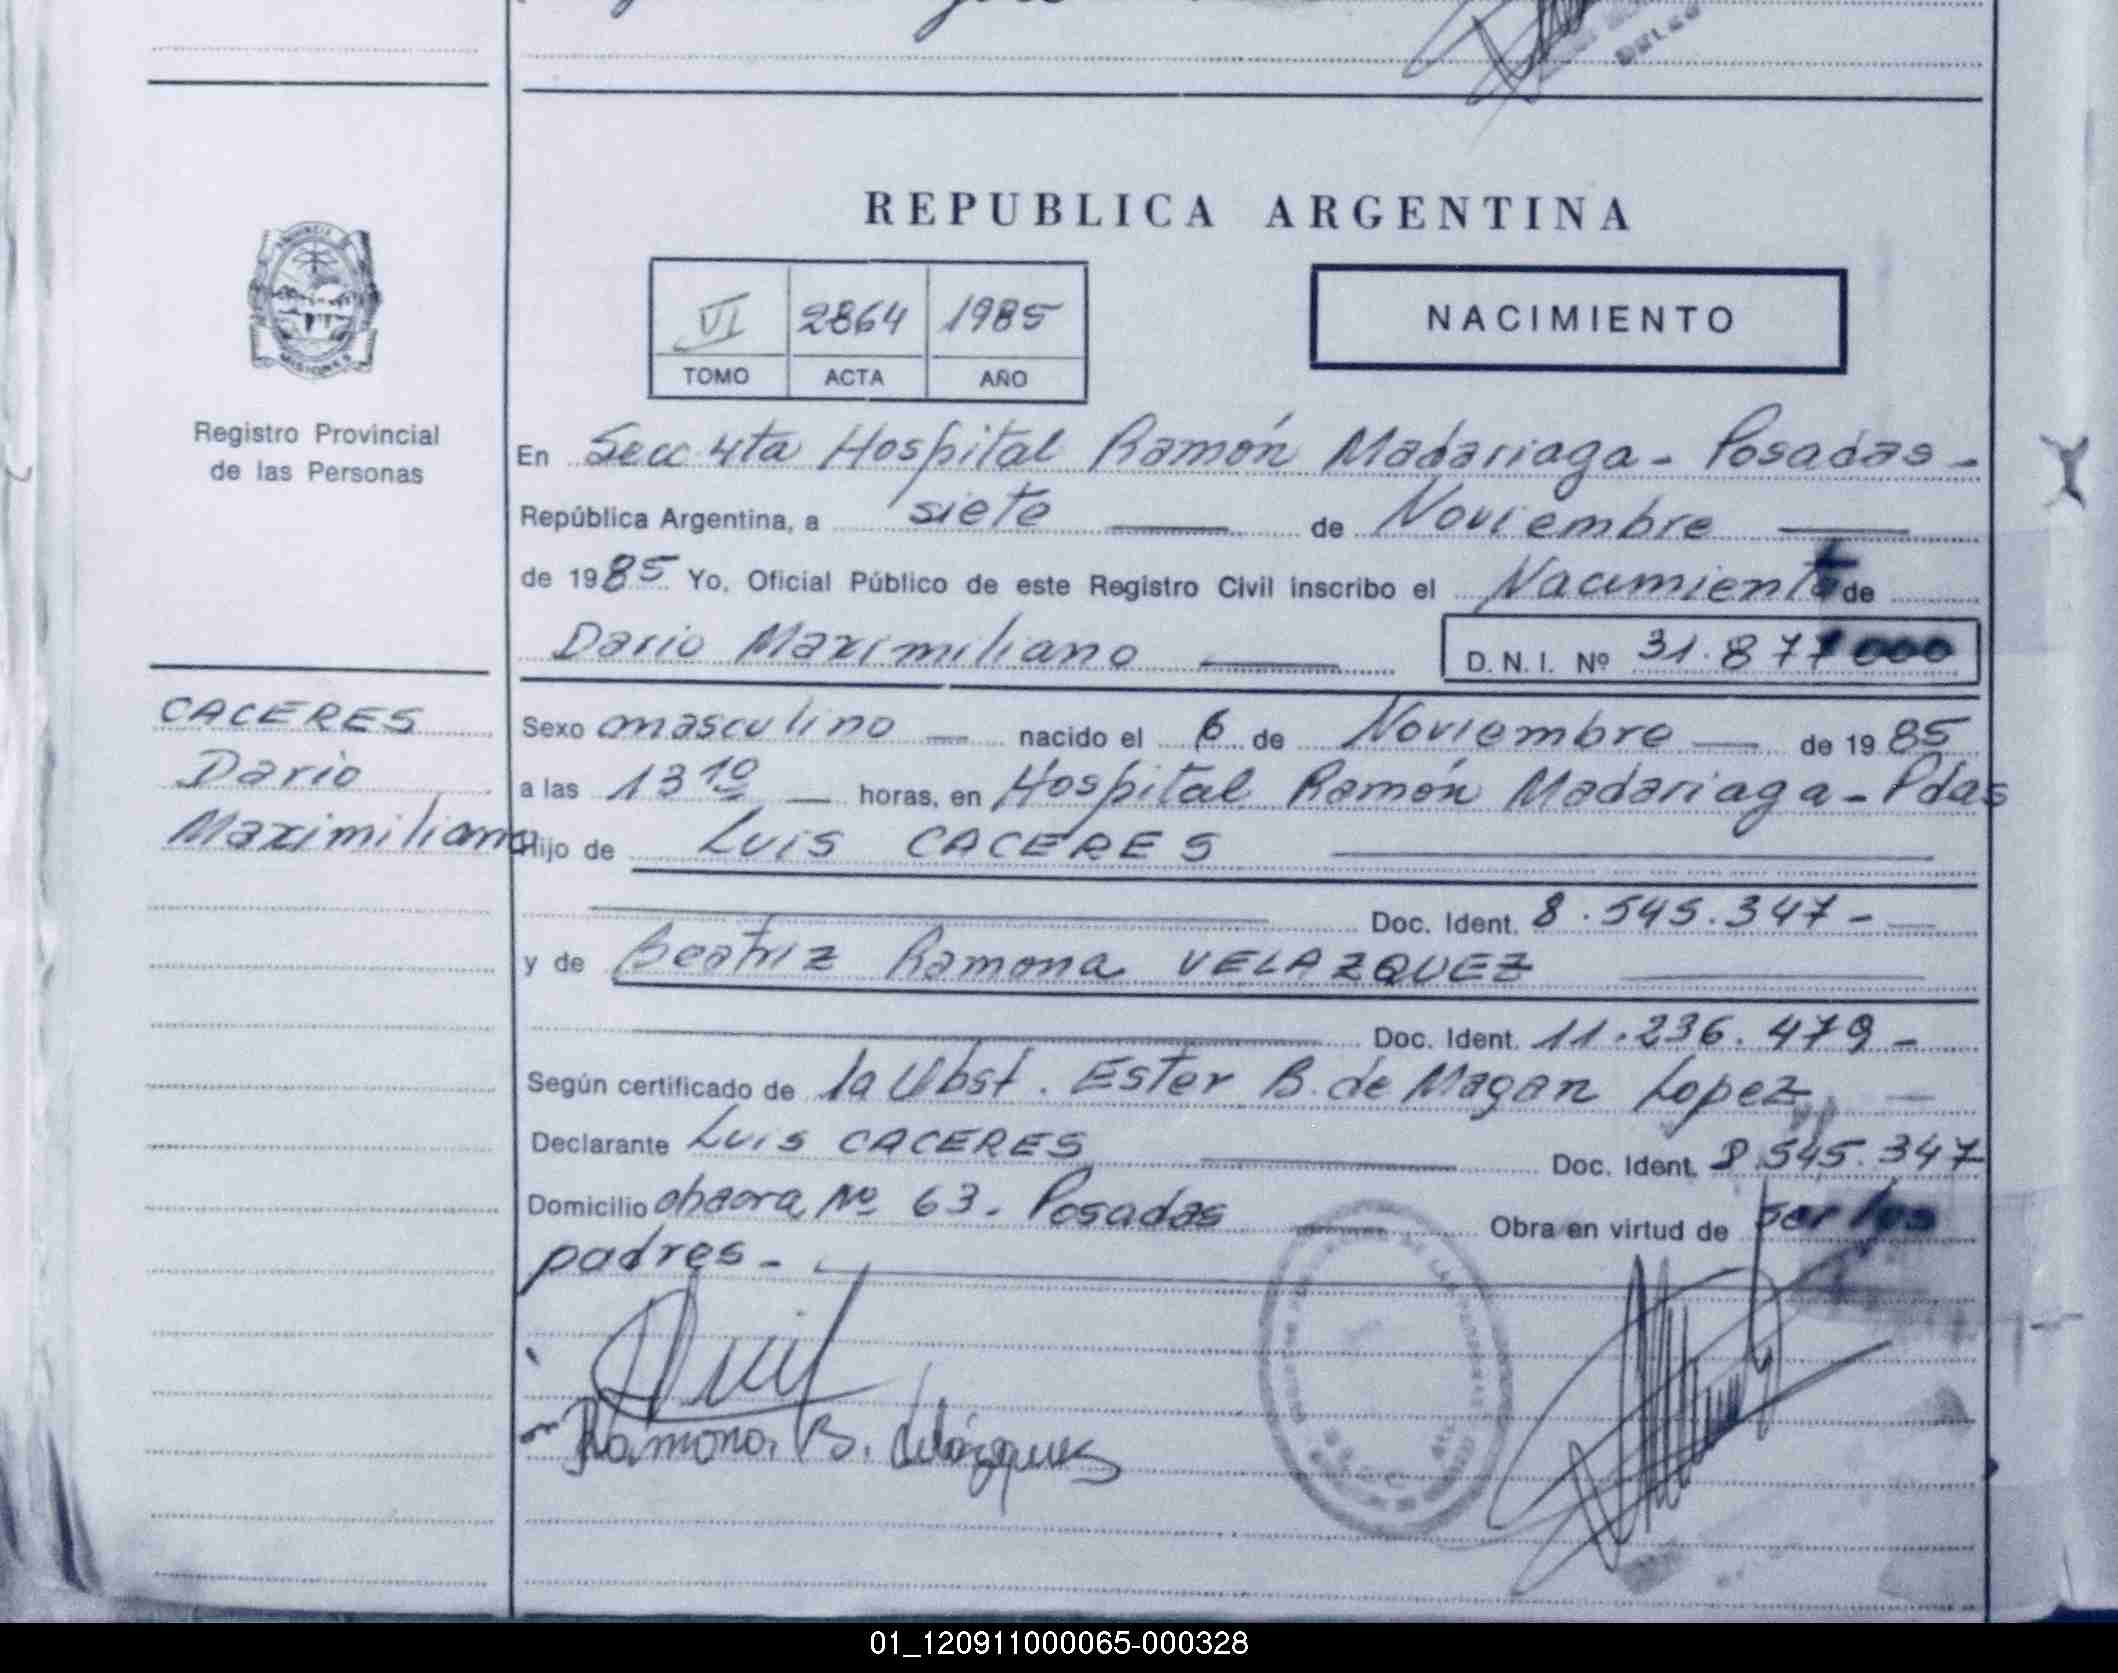 REPUBLICA ARGENTINA
VI 2864 1985
TOMO ACTA AÑO
NACIMIENTO
Registro Provincial
de las Personas
En Secc 4ta Hospital Ramón Madariaga - Posadas -
República Argentina, a siete de Noviembre
de 1985 Yo, Oficial Público de este Registro Civil inscribo el Nacimiento de
Dario Maximiliano D.N.I. Nº 31.877000
CACERES
Dario
Maximiliano
Sexo masculino nacido el 6 de Noviembre de 1985
a las 13 10 horas, en Hospital Ramón Madariaga - Pdas
Hijo de Luis CACERES
Doc. Ident. 8.545.347 -
y de Beatriz Ramona VELAZQUEZ
Doc. Ident. 11.236.479 -
Según certificado de la Obst. Ester B. de Magan Lopez
Declarante Luis CACERES Doc. Ident. 8.545.347
Domicilio chacra Nº 63 - Posadas Obra en virtud de ser los
padres -
Ramona B. Velázquez
01_120911000065-000328